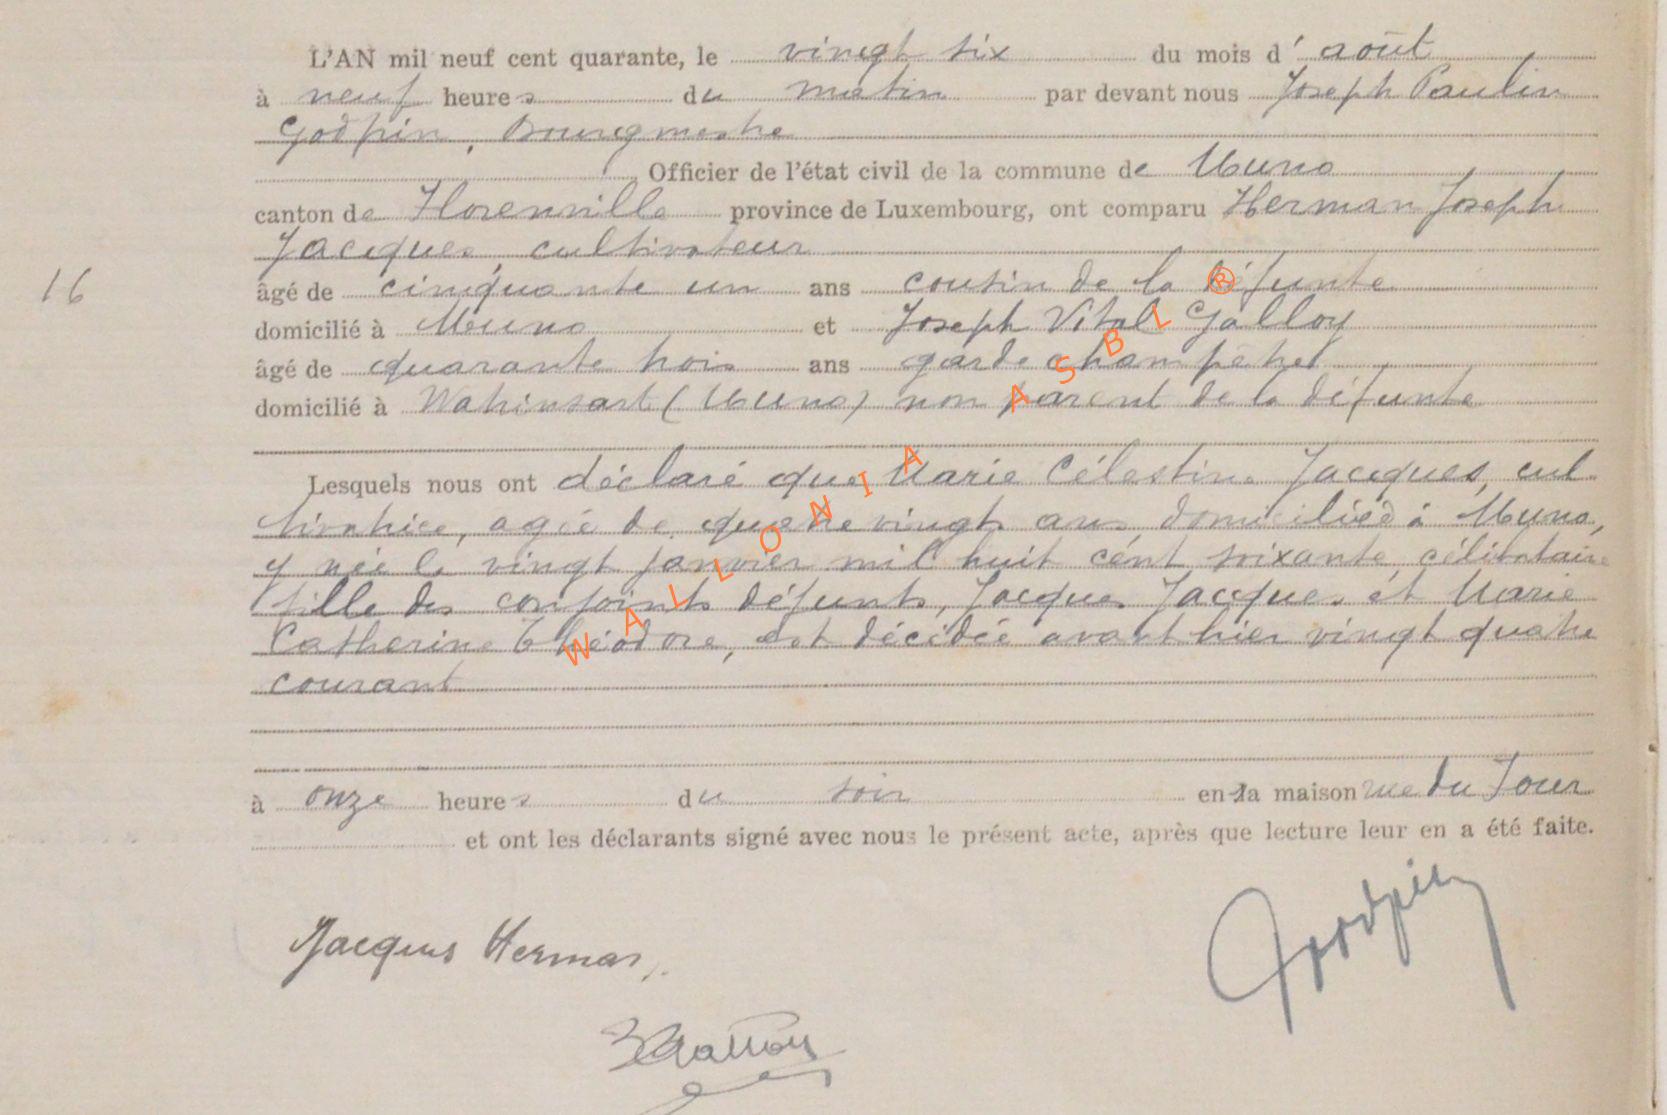 L'AN mil neuf cent quarante, le vingt six du mois d' août
à neuf heures du matin par devant nous Joseph Paulin
Godfrin, Bourgmestre
, Officier de l'état civil de la commune de Muno
canton de Florenville province de Luxembourg, ont comparu Herman Joseph
Jacques, cultivateur
16
âgé de cinquante un ans cousin de la défunte
domicilié à Muno et Joseph Vital Galloy
âgé de quarante trois ans garde champêtre
domicilié à (Muno) non parent de la défunte
Lesquels nous ont déclaré que Marie Célestine Jacques, cul
tivatrice, agée de quatre vingts ans, domiciliée à Muno,
y née le vingt janvier mil huit cent soixante, célibataire
fille des conjoints défunts, Jacques Jacques et Marie
Catherine Théodore, est décédée avant hier vingt quatre
courant
à onze heures du soir en la maison rue du Four
et ont les déclarants signé avec nous le présent acte, après que lecture leur en a été faite.
Jacques Herman
Godfrin
WALLONIA ASBL ®